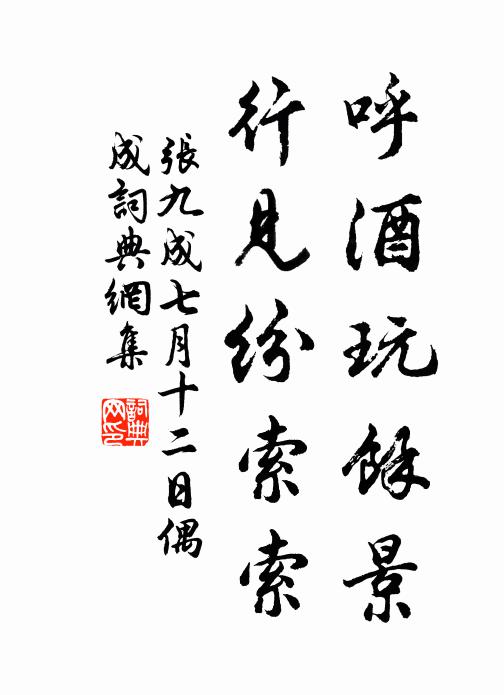 呼酒玩餘景
行見紛索索
張九成七月十二日偶
成詞典網集
詞典
网印